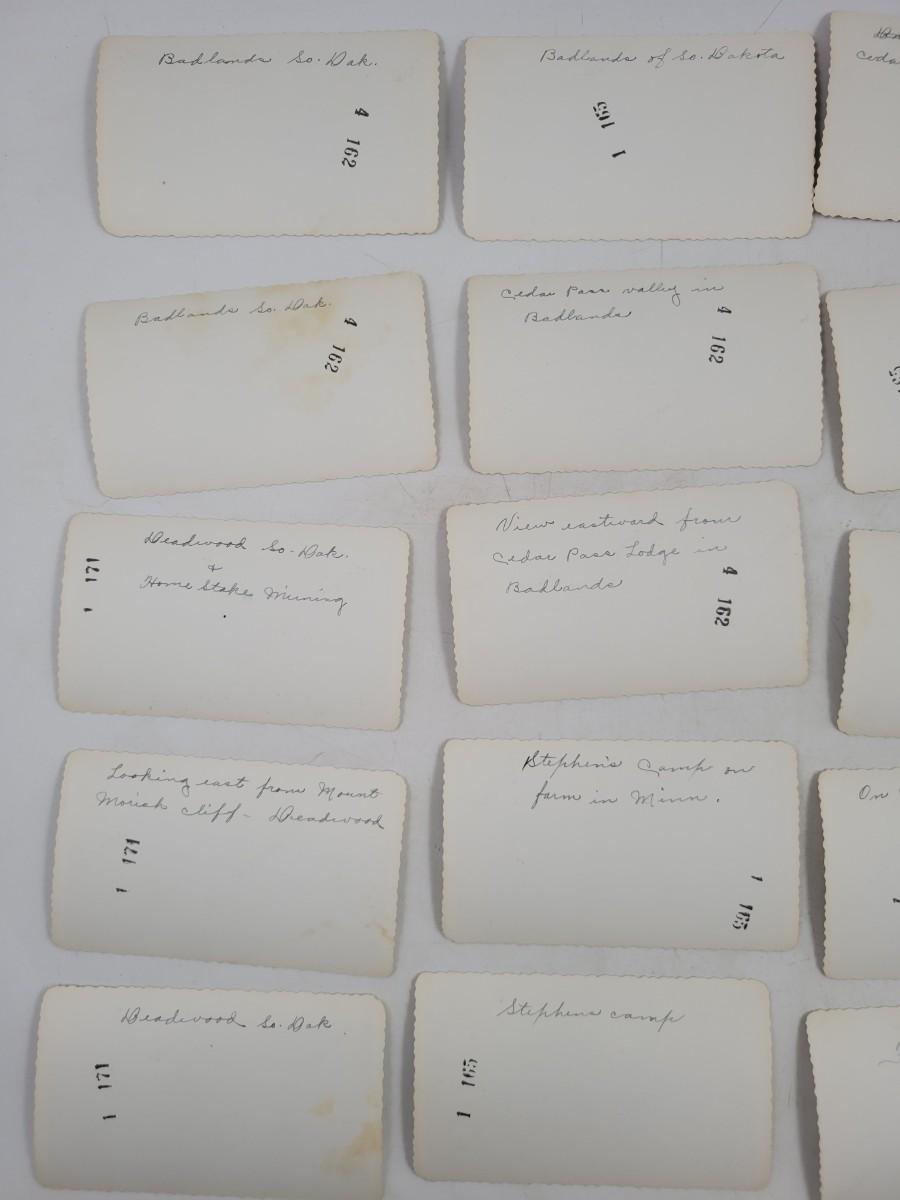 Badlands So. Dak.
4 162
Badlands of So. Dakota
165 1
Badlands So. Dak.
4 162
Cedar Pass valley in
Badlands
4 162
Deadwood So. Dak.
+
Home Stake Mining
1 171
View eastward from
Cedar Pass Lodge in
Badlands
4 162
Looking east from Mount
Moriah cliff - Deadwood
1 171
Stephens Camp on
farm in Minn.
1 165
On
1
Deadwood So. Dak.
1 171
Stephens camp
1 165